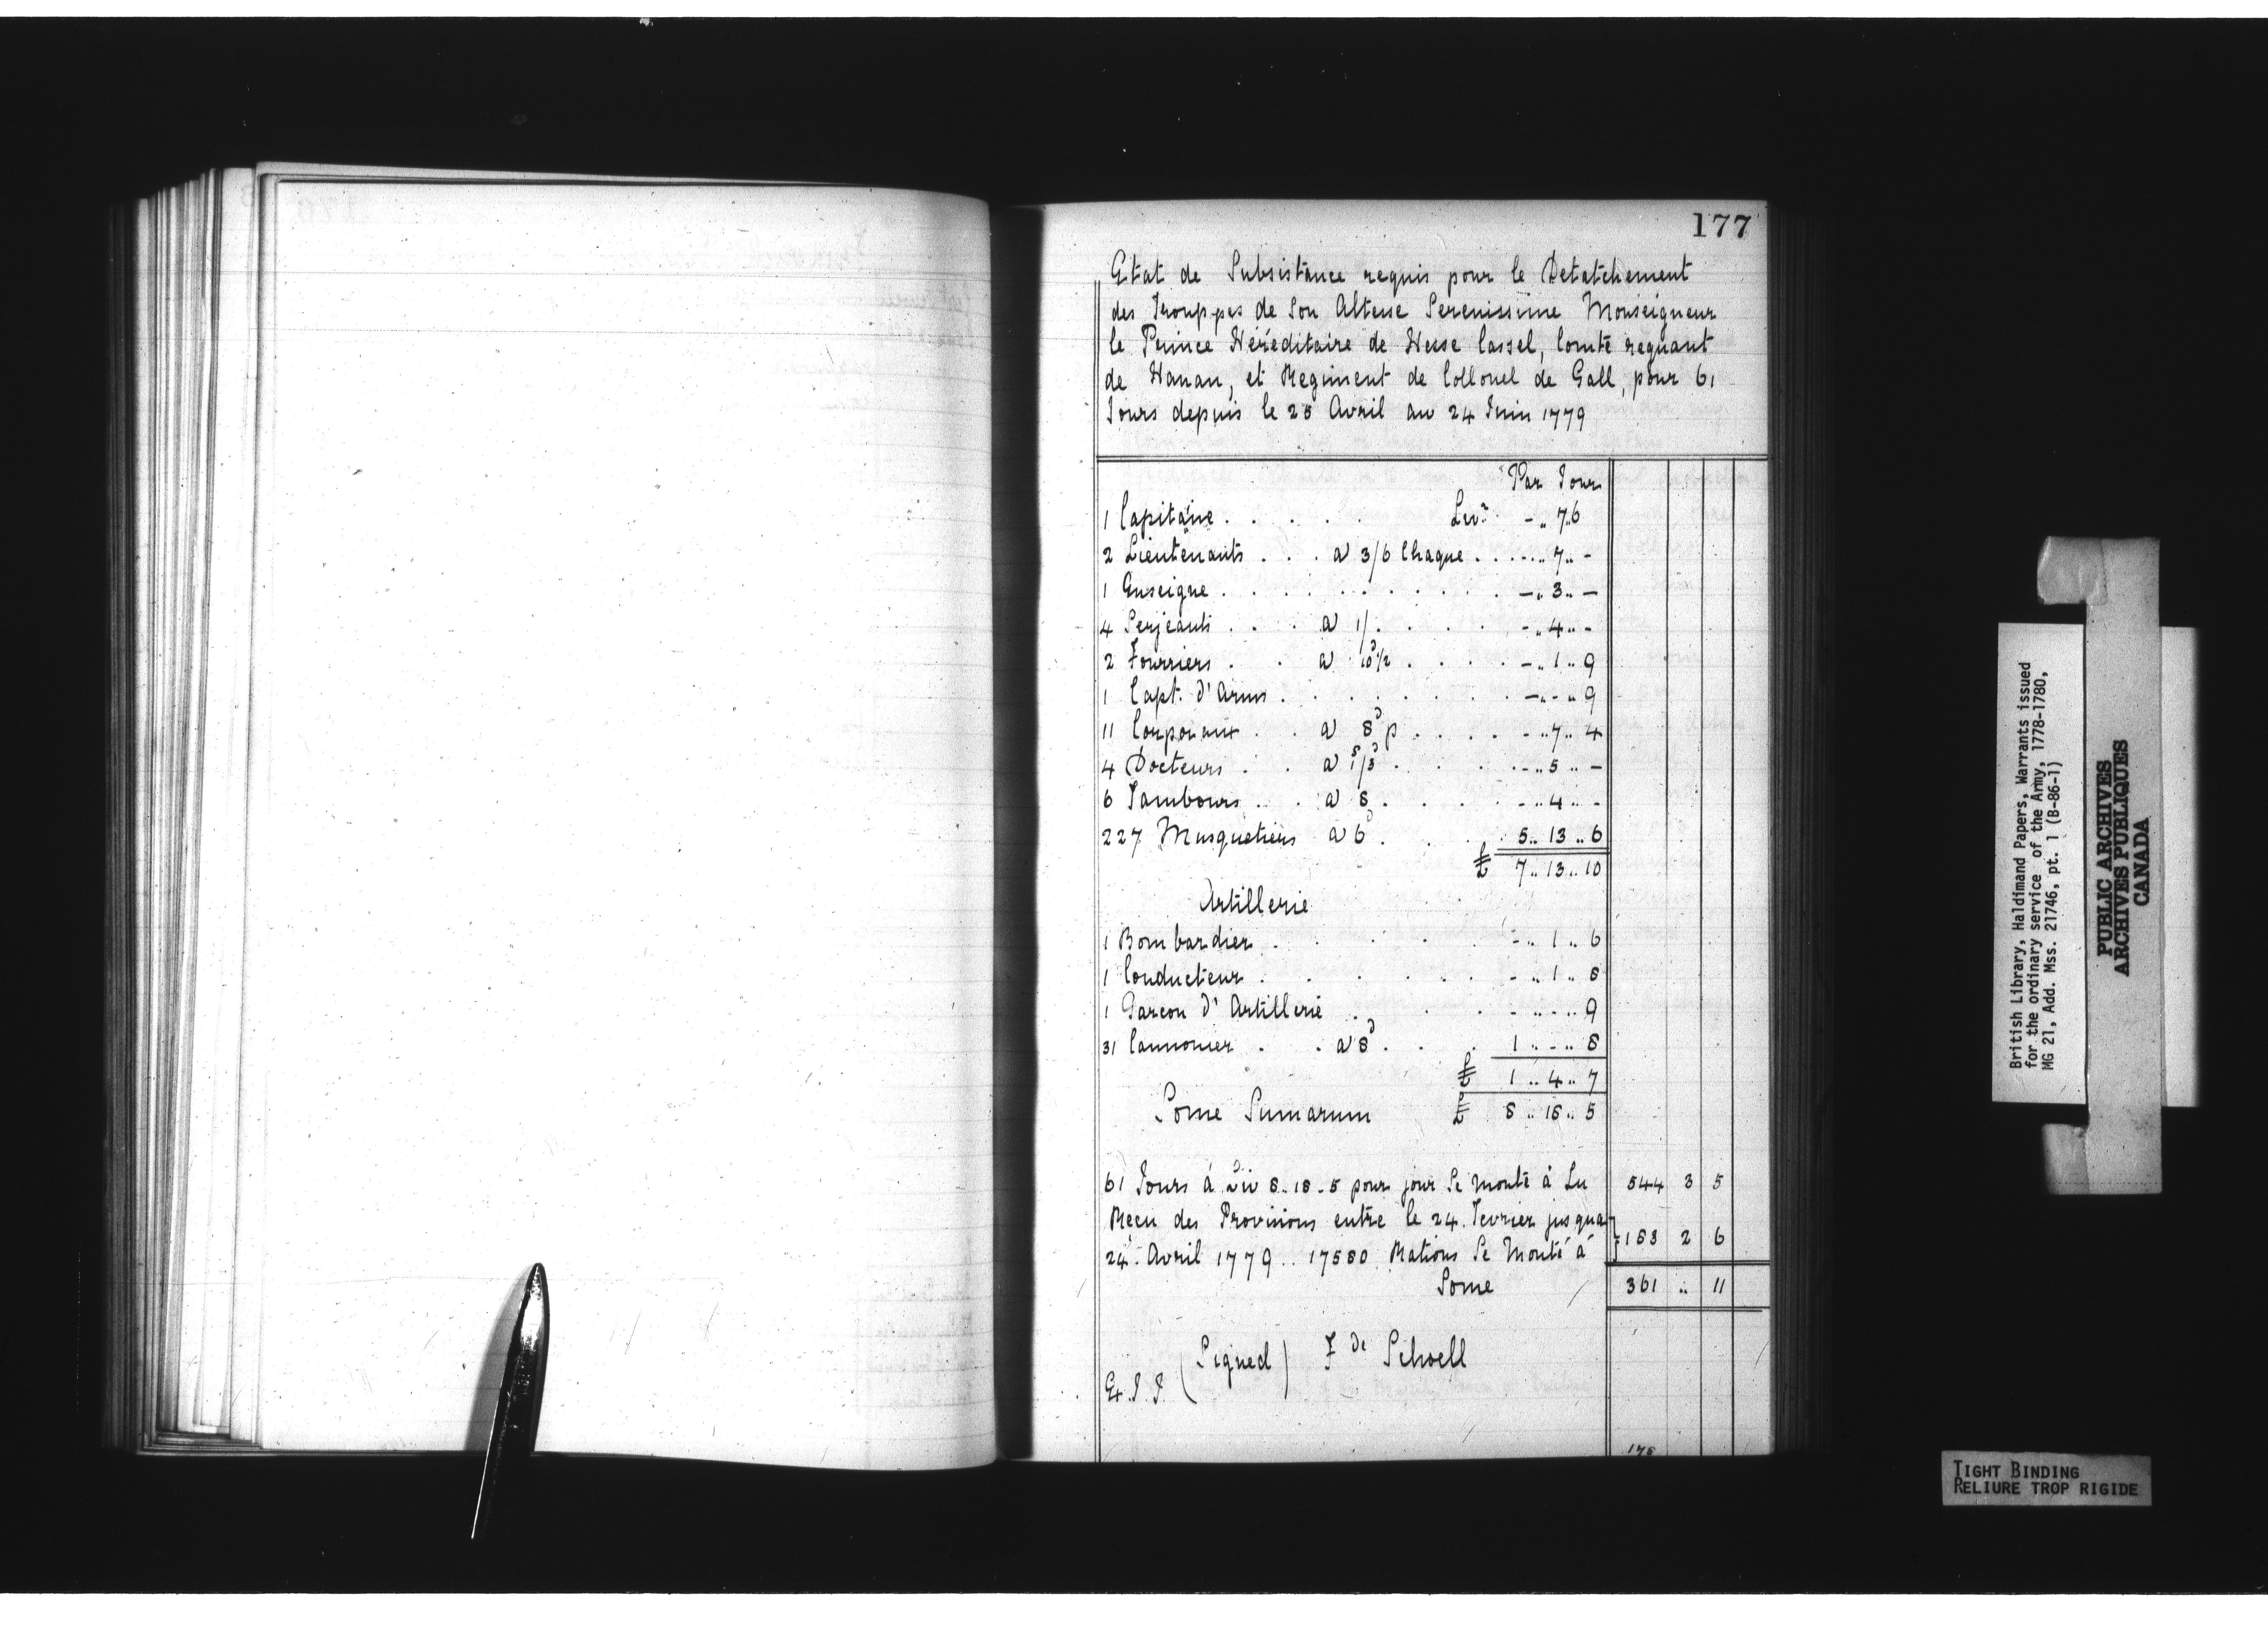 177
Etat de Subsistance requis pour le Detatchement
des Trouppes de Son Altesse Serenissime Monseigneur
le Prince Héréditaire de Hesse Cassel, Comté regnant
de Hanau, et Regiment de Collonel de Gall, pour 61
Jours depuis le 25 Avril au 24 Juin 1779
Par Jour
1 Capitaine . . . . . Livr - .. 7..6
2 Lieutenants . . . a 3/6 Chaque . . . - .. 7 .. -
1 Enseigne . . . . . . . . . . - .. 3 .. -
4 Serjeants . . . a 1/ . . . . . - .. 4 .. -
2 Fourriers . . a 10½ d . . . . - .. 1 .. 9
1 Capt. d'Arms . . . . . . . . - .. - .. 9
11 Corporaux . . a 8d p . . . . - .. 7 .. 4
4 Docteurs . . a 1s/3d . . . . - .. 5 .. -
6 Tambours . . a 8 . . . . - .. 4 .. -
227 Musquetiers a 6d . . . 5 .. 13 .. 6
£ 7 .. 13 .. 10
Artillerie
1 Bombardier . . . . . . - .. 1 .. 6
1 Conducteur . . . . . . - .. 1 .. 8
1 Garcon d'Artillerie . . . . - .. - .. 9
31 Cannonier . . a 8d . . . 1 .. - .. 8
£ 1 .. 4 .. 7
Some Sumarum £ 8 .. 18 .. 5
61 Jours á Liv 8..18..5 pour jour Se monte à Liv 544 3 5
Reçu des Provisions entre le 24. Fevrier jusqua
24. Avril 1779 .. 17580 Rations Se Monté á 183 2 6
Some 361 .. 11
(Signed) F de Schoell
Ex. J. J.
178
British Library, Haldimand Papers, Warrants issued
for the ordinary service of the Army, 1778-1780,
MG 21, Add. Mss. 21746, pt. 1 (B-86-1)
PUBLIC ARCHIVES
ARCHIVES PUBLIQUES
CANADA
TIGHT BINDING
RELIURE TROP RIGIDE